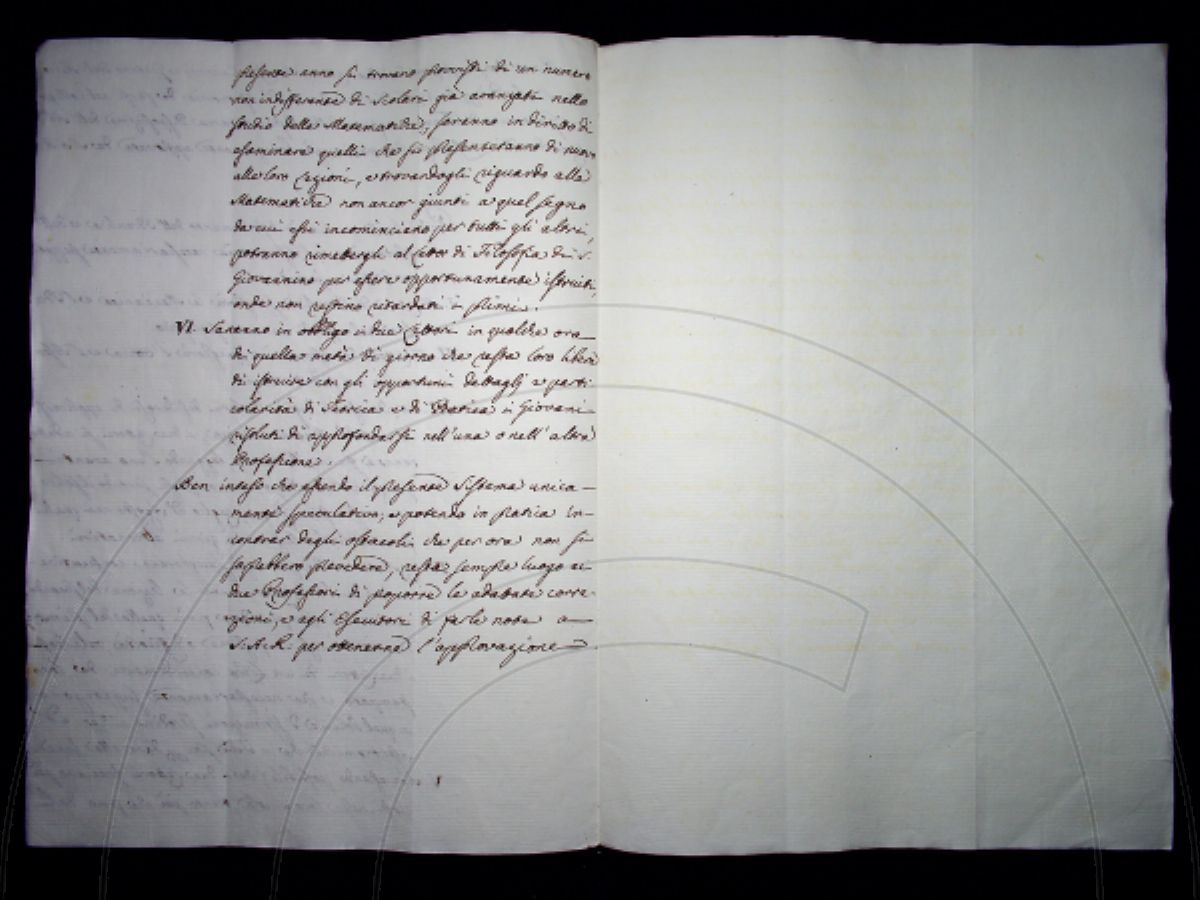 presente anno si trovano provvisti di un numero
non indifferente di Scolari già avanzati nello
studio delle Matematiche, saranno in diritto di
esaminare quelli che si presenteranno di nuovo
alle loro Lezioni, e trovandogli riguardo alla
Matematica non ancor giunti a quel segno
da cui essi incominciano per tutti gli altri,
potranno rimettergli al Lettor di Filosofia di S.
Giovannino per essere opportunamente istruiti,
onde non restino ritardati i primi.
VI. Saranno in obbligo i due Lettori in qualche ora
di quella metà di giorno che resta loro libera
di istruire con gli opportuni dettaglj e parti
colarità di Teorica e di Pratica i Giovani
risoluti di approfondarsi nell'una o nell'altra
Professione.
Ben inteso che essendo il presente Sistema unica-
mente speculativo, e potendo in pratica in-
contrar degli ostacoli che per ora non si
saprebbero prevedere, resta sempre luogo ai
due Professori di proporre le adattate corre-
zioni, e agli Esecutori di farle note a
S.A.R. per ottenerne l'approvazione